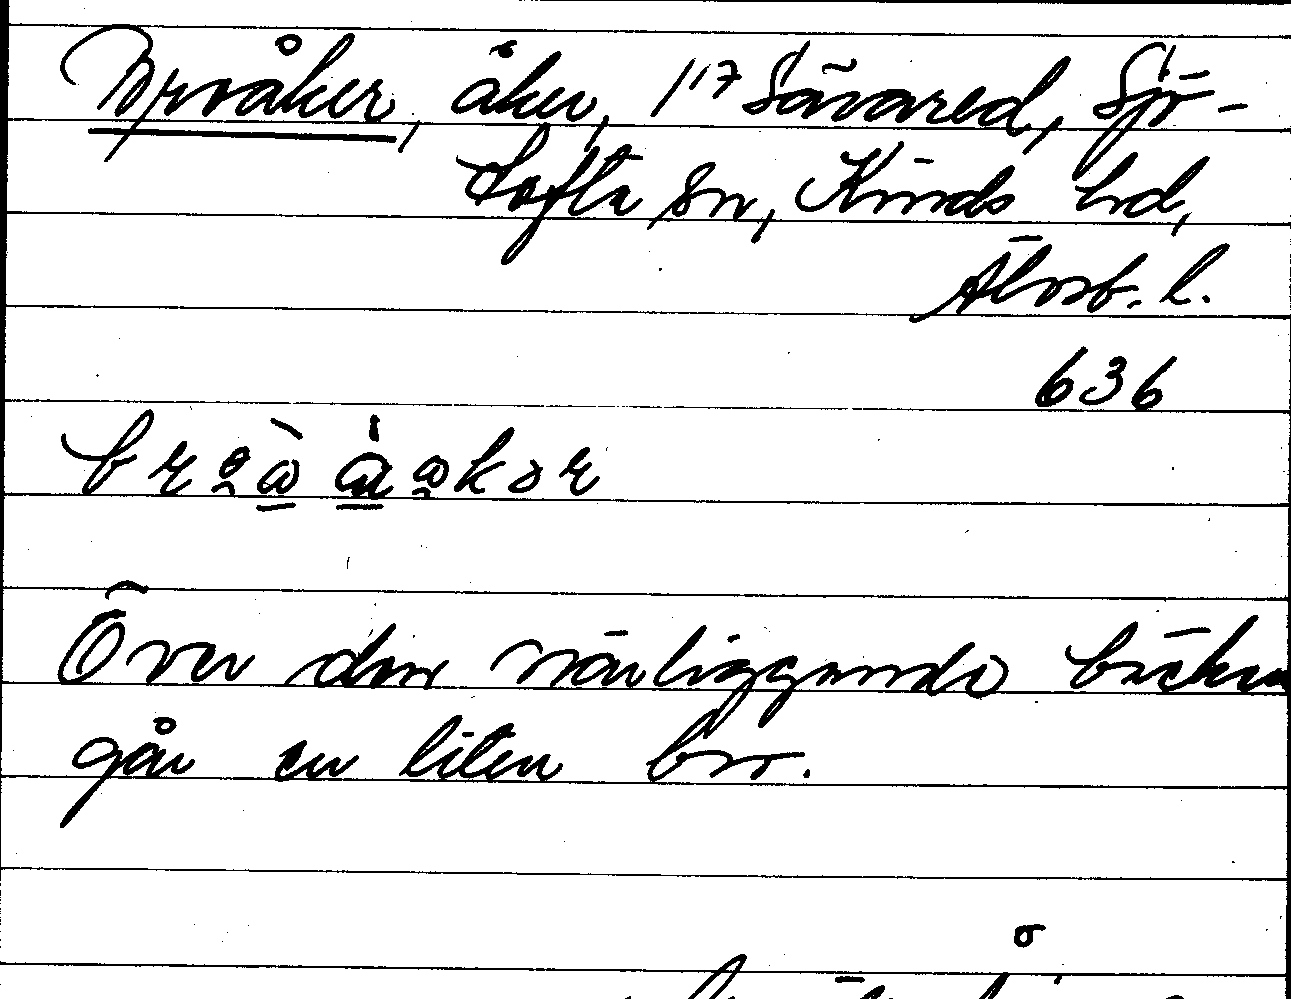 Broåker, åker, 1/17 Sävared, Sjö-
tofta sn, Kinds hd,
Älvsb. l.
636
Över den närliggande bäcken
går en liten bro.